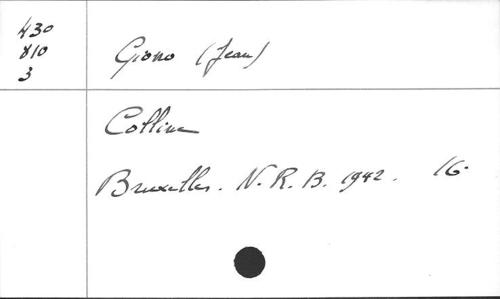 430
810
3
Giono (Jean)
Colline
Bruxelles. N. R. B. 1942. 16.